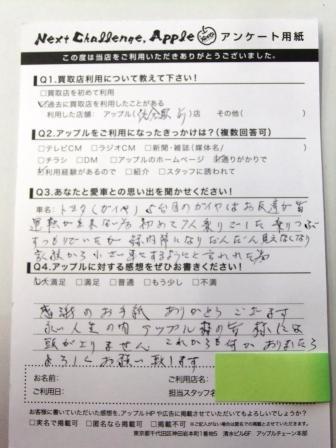 Next Challenge, Apple アンケート用紙
この度は当店をご利用いただきありがとうございました。
Q1.買取店利用について教えて下さい!
□買取店を初めて利用
□過去に買取店を利用したことがある
利用した店舗: アップル( )店 その他( )
Q2.アップルをご利用になったきっかけは?(複数回答可)
□テレビCM □ラジオCM □新聞・雑誌(媒体名 )
□チラシ □DM □アップルのホームページ □通りがかりで
□利用経験があるので □紹介 □スタッフに誘われて
Q3.あなたと愛車との思い出を聞かせください!
車名: トヨタ(ガイヤ) 2台目のガイヤはお友達が皆
運転が出来ない為 初めて7人乗りにした 乗りつぶ
すつもりでいたが 緑内障になりだんだん見えなくなり
家族から小さい車にするようにと言われた為
Q4.アップルに対する感想をぜひお書きください!
□大満足 □満足 □普通 □もう少し □不満
感謝のお手紙 ありがとうございます
永い人生の内 アップル様の皆様には
頭が上りません これからも何かありましたら
よろしくお願い致します
お名前: ご利用店名:
ご利用日: 担当スタッフ名
お客様に書いていただいた感想を、アップルHPや広告に掲載させていただいてもよろしいでしょうか?
□実名で掲載可 □匿名なら掲載可 □掲載不可
東京都千代田区神田岩本町1番地5 清水ビル6F アップルチェーン本部